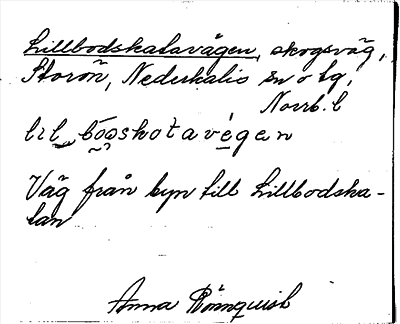 Lillbodskatavägen, skogsväg,
Storön, Nederkalix sn o tg,
Norrb. l
lıl boɷskotavegen
Väg från byn till Lillbodska-
tan
Anna Rönnquist